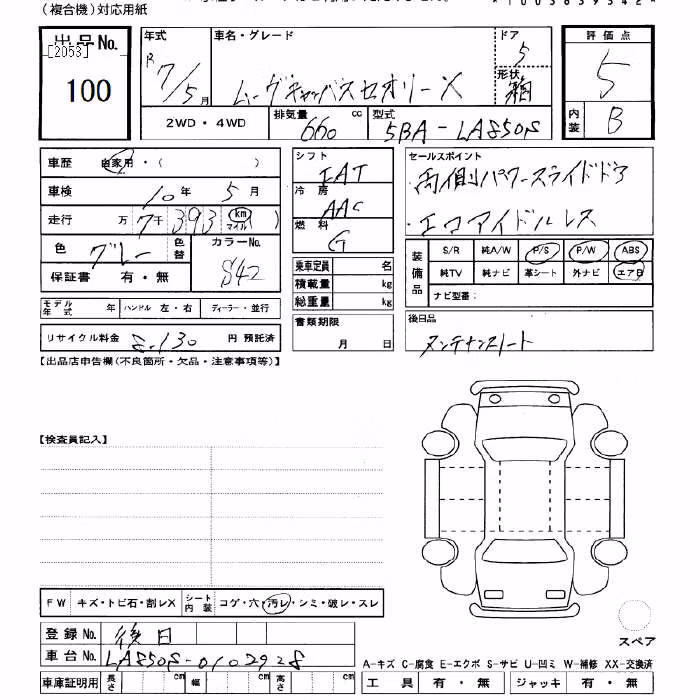 (複合機)対応用紙
出品No.
[2053]
100
年式
R7/5月
車名・グレード
ムーヴキャンバスセオリーX
ドア
5
形状
箱
評価点
5
内装
B
2WD・4WD
排気量
660
cc
型式
5BA-LA850S
車歴
自家用・( )
車検
10年5月
走行
万7千393 km マイル )
色
グレー
色替
カラーNo.
S42
保証書
有・無
シフト
IAT
冷房
AAC
燃料
G
乗車定員
名
積載量
kg
総重量
kg
セールスポイント
・両側パワースライドドア
・エコアイドルレス
装備品
S/R 純A/W P/S P/W ABS
純TV 純ナビ 革シート 外ナビ エアB
ナビ型番:
モデル年式
年
ハンドル 左・右
ディーラー・並行
リサイクル料金
8.130
円 預託済
書類期限
月 日
後日品
メンテナンスノート
【出品店申告欄(不良箇所・欠品・注意事項等)】
【検査員記入】
FW
キズ・トビ石・割レX
シート内装
コゲ・穴・汚レ・シミ・破レ・スレ
登録No.
後日
車台No.
LA850S-0102928
スペア
A-キズ C-腐食 E-エクボ S-サビ U-凹ミ W-補修 XX-交換済
車庫証明用
長さ
cm
幅
cm
高さ
cm
工具
有・無
ジャッキ
有・無